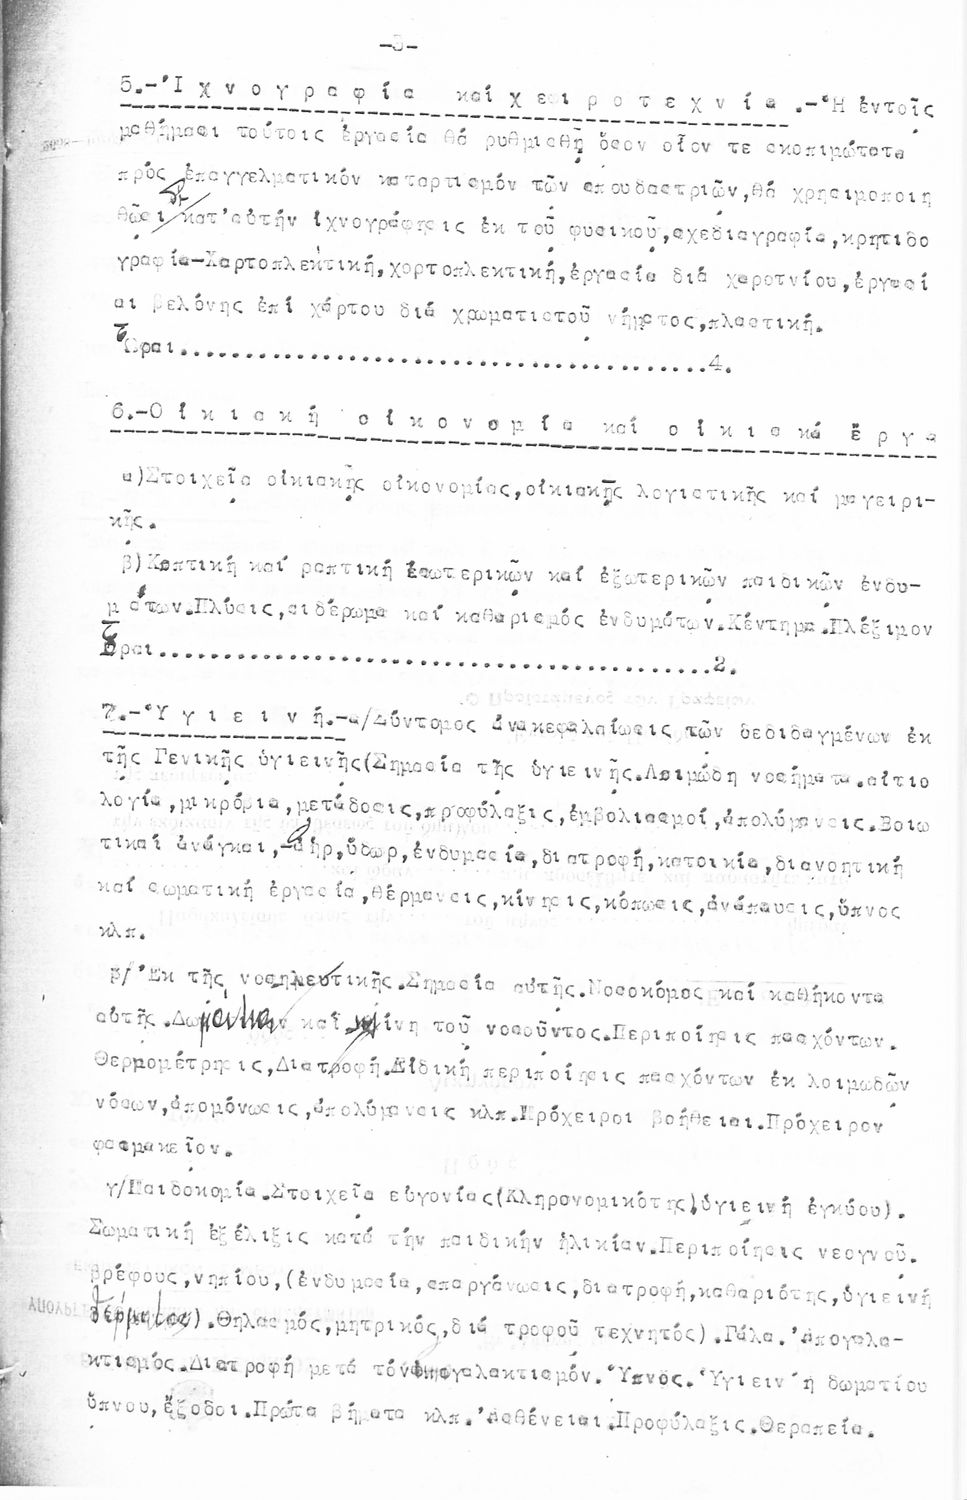 -3-
5.-Ἰ χ ν ο γ ρ α φ ί α καί χ ε ι ρ ο τ ε χ ν ί α .-Ἡ ἐντοῖς
μαθήμασι τούτοις ἐργασία θά ρυθμισθῇ ὅσον οἷον τε σκοπιμώτατα
πρός ἐπαγγελματικόν καταρτισμόν τῶν σπουδαστριῶν,θά χρησιμοποιη
θῶσι κατ'αὐτήν ἰχνογράφησις ἐκ τοῦ φυσικοῦ,σχεδιαγραφία,κρητιδο
γραφία-Χαρτοπλεκτική,χορτοπλεκτική,ἐργασία διά χαρτονίου,ἐργασί
αι βελόνης ἐπί χάρτου διά χρωματιστοῦ νήματος,πλαστική.
Ὧραι..........................................4.
6.-Ο ἰ κ ι α κ ή ο ἰ κ ο ν ο μ ί α καί ο ἰ κ ι α κ ά ἔ ρ γ α
α)Στοιχεῖα οἰκιακῆς οἰκονομίας,οἰκιακῆς λογιστικῆς καί μαγειρι-
κῆς.
β)Κοπτική καί ραπτική ἐσωτερικῶν καί ἐξωτερικῶν παιδικῶν ἐνδυ-
μάτων.Πλύσις,σιδέρωμα καί καθαρισμός ἐνδυμάτων.Κέντημα.Πλέξιμον
Ὧραι............................................2.
7.-Ὑ γ ι ε ι ν ή.-α/Σύντομος ἀνακεφαλαίωσις τῶν δεδιδαγμένων ἐκ
τῆς Γενικῆς ὑγιεινῆς(Σημασία τῆς ὑγιεινῆς.Λοιμώδη νοσήματα.αἰτιο
λογία,μικρόβια,μετάδοσις,προφύλαξις,ἐμβολιασμοί,ἀπολύμανσις.Βοιω
τικαί ἀνάγκαι,-ἀήρ,ὕδωρ,ἐνδυμασία,διατροφή,κατοικία,διανοητική
καί σωματική ἐργασία,θέρμανσις,κίνησις,κόπωσις,ἀνάπαυσις,ὕπνος
κλπ.
β/Ἐκ τῆς νοσηλευτικῆς.Σημασία αὐτῆς.Νοσοκόμος καί καθήκοντα
αὐτῆς.Δωμάτιον καί κλίνη τοῦ νοσοῦντος.Περιποίησις πασχόντων.
Θερμομέτρησις,Διατροφή.Εἰδική περιποίησις πασχόντων ἐκ λοιμωδῶν
νόσων,ἀπομόνωσις,ἀπολύμανσις κλπ.Πρόχειροι βοήθειαι.Πρόχειρον
φαρμακεῖον.
γ/Παιδοκομία.Στοιχεῖα εὐγονίας(Κληρονομικότης)ὑγιεινή ἐγκύου).
Σωματική ἐξέλιξις κατά τήν παιδικήν ἡλικίαν.Περιποίησις νεογνοῦ.
βρέφους,νηπίου,(ἐνδυμασία,σπαργάνωσις,διατροφή,καθαριότης,ὑγιεινή
δέρματος).Θηλασμός,μητρικός,διά τροφοῦ τεχνητός).Γάλα.Ἀπογαλα-
κτισμός.Διατροφή μετά τόν ἀπογαλακτισμόν.Ὕπνος.Ὑγιεινή δωματίου
ὕπνου,ἔξοδοι.Πρῶτα βήματα κλπ.Ἀσθένειαι.Προφύλαξις.Θεραπεία.